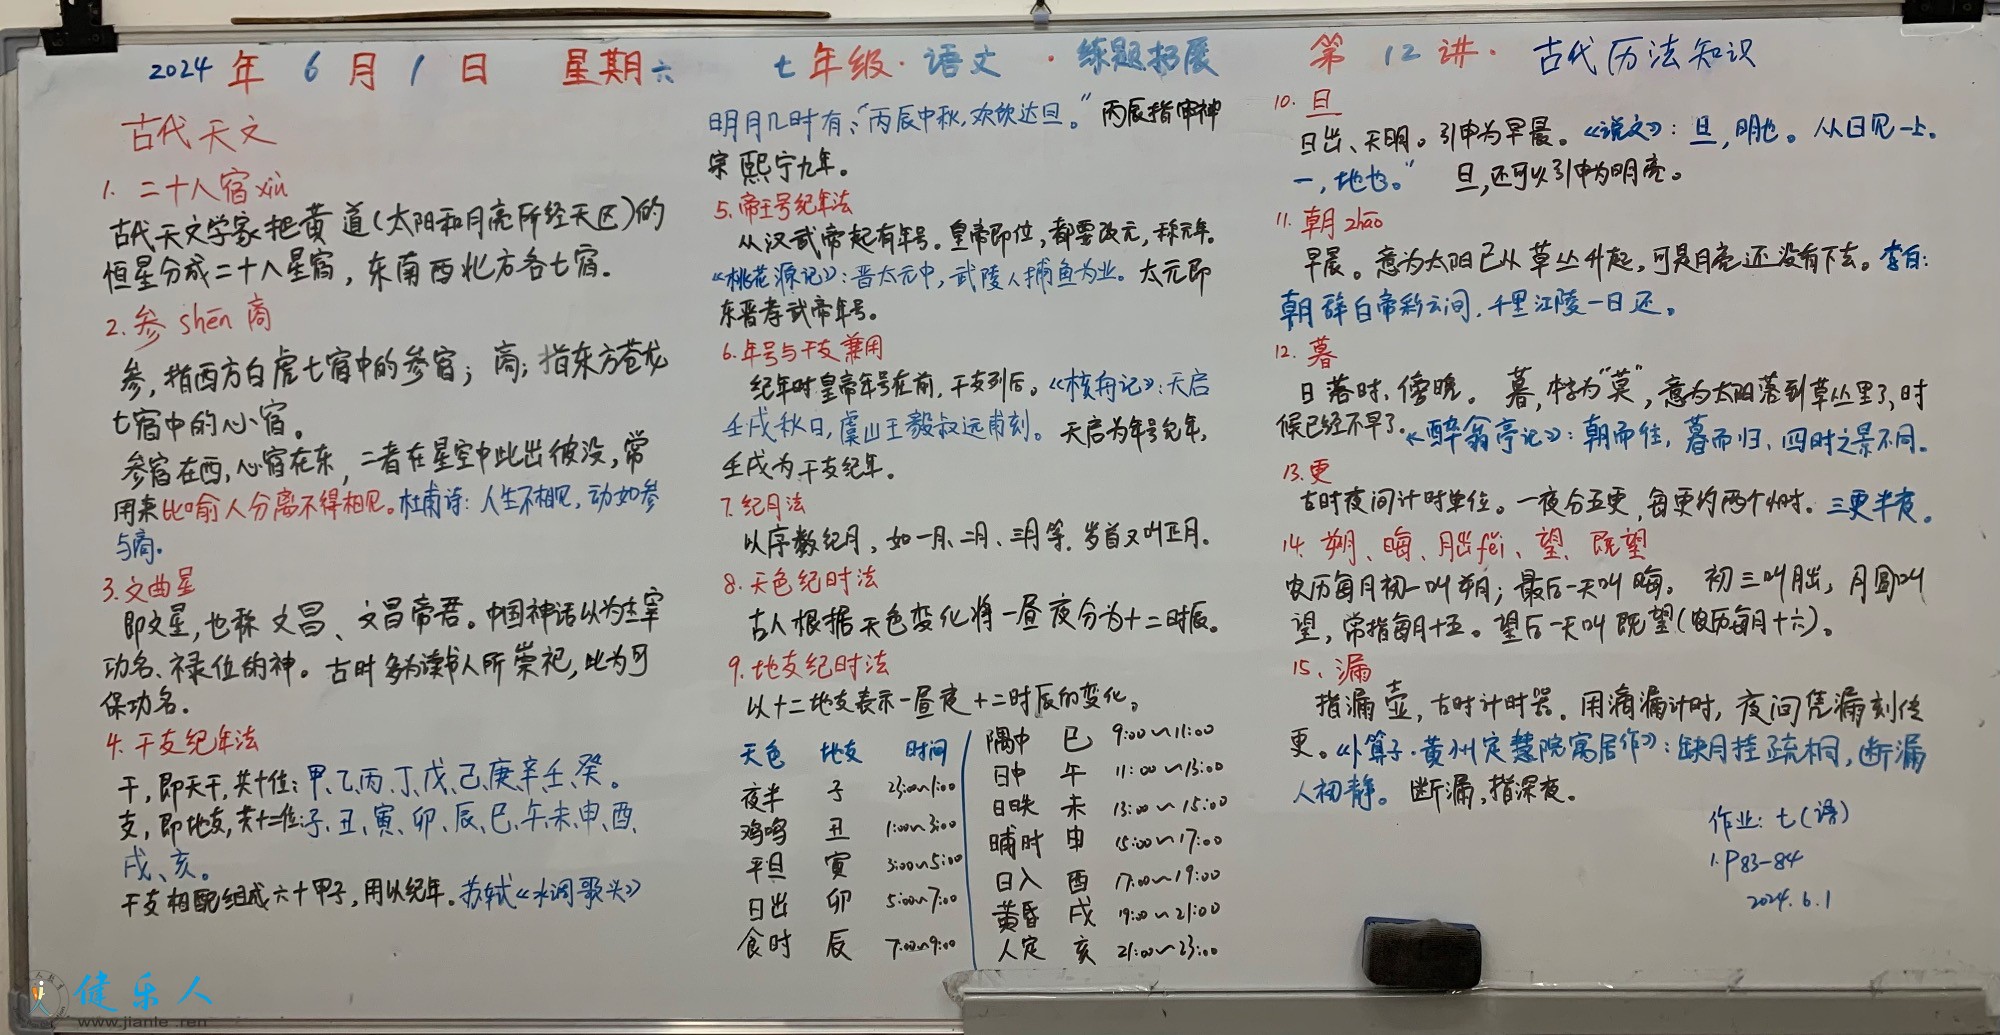 2024 年 6 月 1 日 星期六 七年级·语文·练题拓展 第 12 讲· 古代历法知识
古代天文
1. 二十八宿xiù
古代天文学家把黄道(太阳和月亮所经天区)的
恒星分成二十八星宿，东南西北方各七宿.
2. 参 shēn 商
参，指西方白虎七宿中的参宿；商；指东方苍龙
七宿中的心宿。
参宿在西，心宿在东，二者在星空中此出彼没，常
用来比喻人分离不得相见。杜甫诗：人生不相见，动如参
与商.
3.文曲星
即文星，也称文昌、文昌帝君。中国神话以为主宰
功名、禄位的神。古时多为读书人所崇祀，此为可
保功名.
4. 干支纪年法
干，即天干，共十位：甲、乙、丙、丁、戊、己、庚、辛、壬、癸。
支，即地支，共十二位：子、丑、寅、卯、辰、巳、午、未、申、酉、
戌、亥。
干支相配组成六十甲子，用以纪年。苏轼《水调歌头》
明月几时有：“丙辰中秋，欢饮达旦。” 丙辰指宋神
宗熙宁九年。
5.帝王号纪年法
从汉武帝起有年号。皇帝即位，都要改元，称元年.
《桃花源记》：晋太元中，武陵人捕鱼为业。太元即
东晋孝武帝年号。
6.年号与干支兼用
纪年时皇帝年号在前，干支列后。《核舟记》：天启
壬戌秋日，虞山王毅叔远甫刻。天启为年号纪年，
壬戌为干支纪年。
7.纪月法
以序数纪月，如一月、二月、三月等. 岁首又叫正月.
8.天色纪时法
古人根据天色变化将一昼夜分为十二时辰。
9.地支纪时法
以十二地支表示一昼夜十二时辰的变化。
天色 地支 时间
夜半 子 23:00~1:00
鸡鸣 丑 1:00~3:00
平旦 寅 3:00~5:00
日出 卯 5:00~7:00
食时 辰 7:00~9:00
隅中 巳 9:00~11:00
日中 午 11:00~13:00
日昳 未 13:00~15:00
晡时 申 15:00~17:00
日入 酉 17:00~19:00
黄昏 戌 19:00~21:00
人定 亥 21:00~23:00
10. 旦
日出、天明。引申为早晨。《说文》：旦，明也。从日见一上。
一，地也。” 旦，还可以引申为明亮。
11. 朝 zhāo
早晨。意为太阳已从草丛升起，可是月亮还没有下去。李白：
朝辞白帝彩云间，千里江陵一日还。
12. 暮
日落时，傍晚。暮，本字为“莫”，意为太阳落到草丛里了，时
候已经不早了。《醉翁亭记》：朝而往，暮而归，四时之景不同。
13.更
古时夜间计时单位。一夜分五更，每更约两个小时。三更半夜。
14. 朔、晦、朏fěi、望、既望
农历每月初一叫朔；最后一天叫晦。初三叫朏，月圆叫
望，常指每月十五。望后一天叫既望(农历每月十六)。
15、漏
指漏壶，古时计时器。用滴漏计时，夜间凭漏刻传
更。《卜算子·黄州定慧院寓居作》：缺月挂疏桐，断漏
人初静。断漏，指深夜。
作业：七(语)
1.P83-84
2024.6.1
健乐人
www.jianle.ren